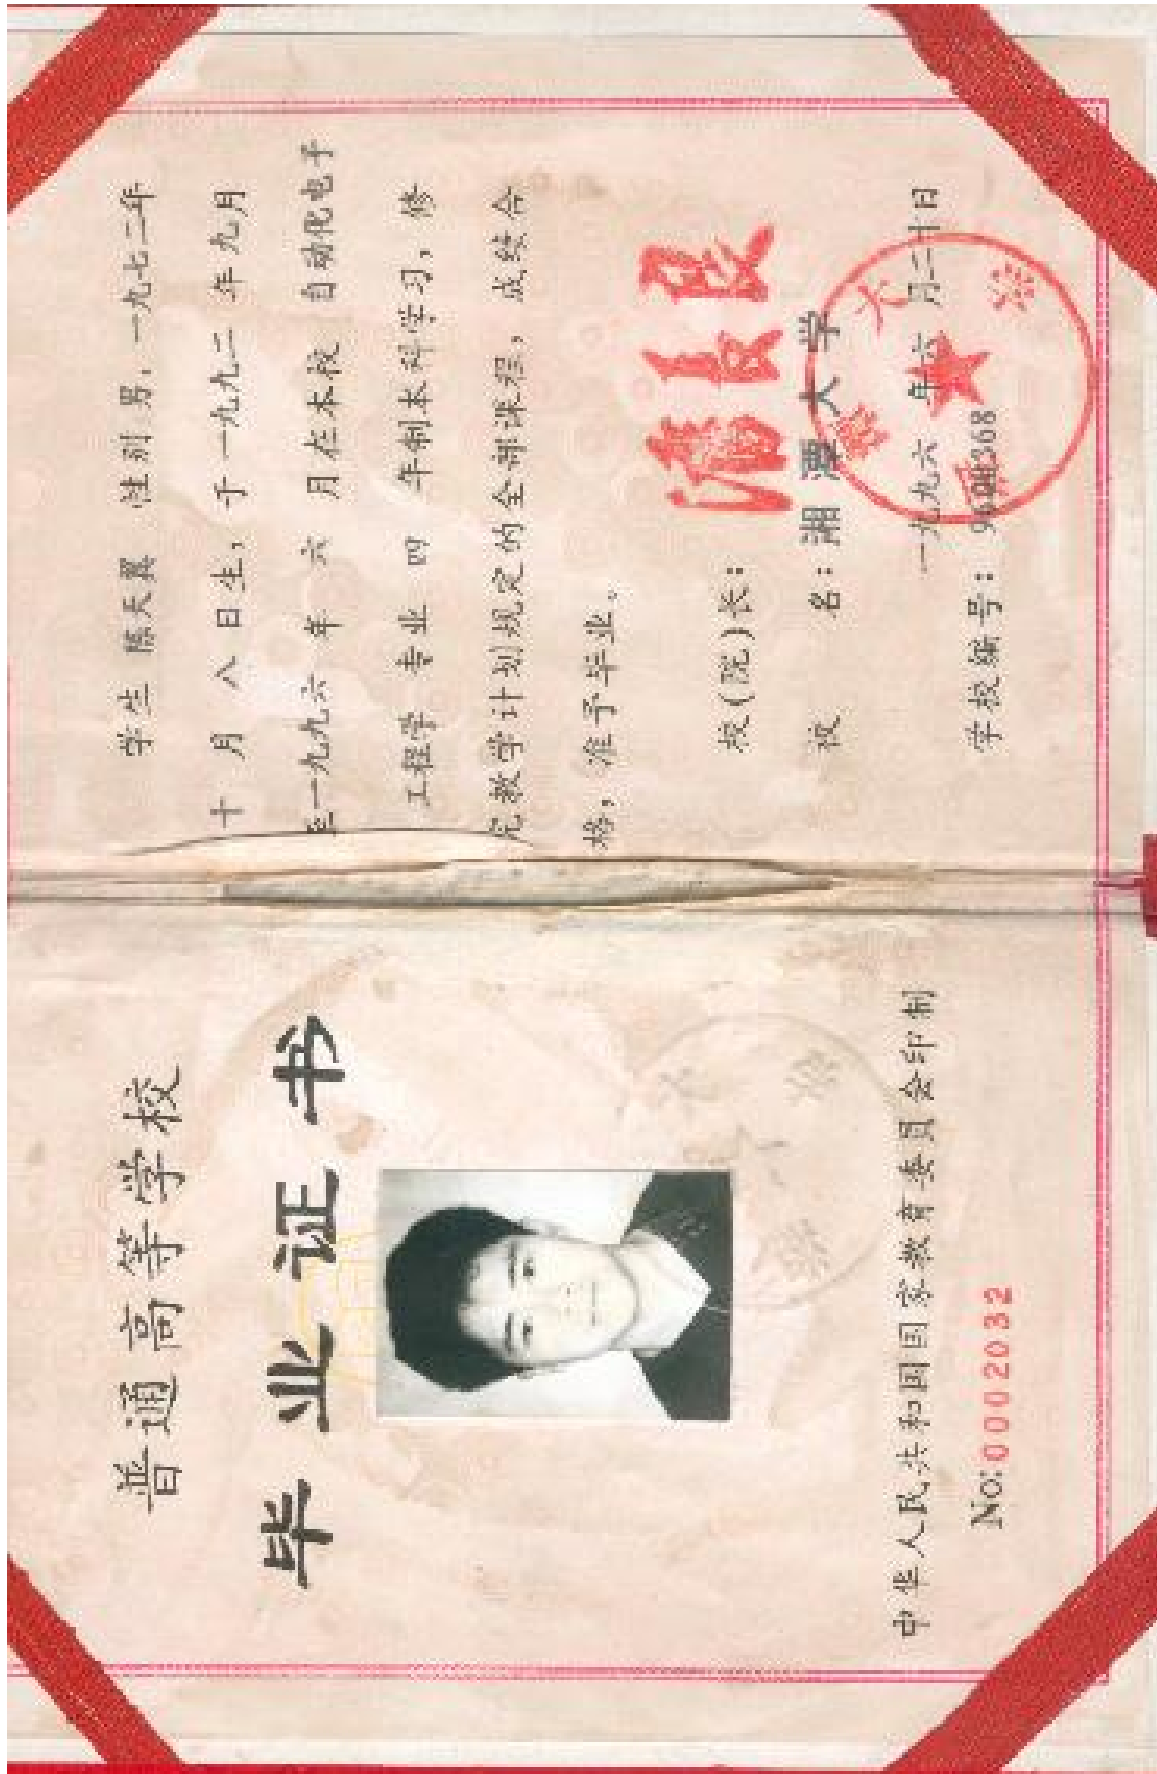 普通高等学校
毕业证书
中华人民共和国国家教育委员会印制
No: 0002032
学生 陈天翼 性别男，一九七二年
十月八日生，于一九九二年九月
至一九九六年六月在本校 自动化电子
工程学 专业 四 年制本科学习，修
完教学计划规定的全部课程，成绩合
格，准予毕业。
校(院)长：
校 名：湘潭大学
一九九六年六月二十日
学校编号：